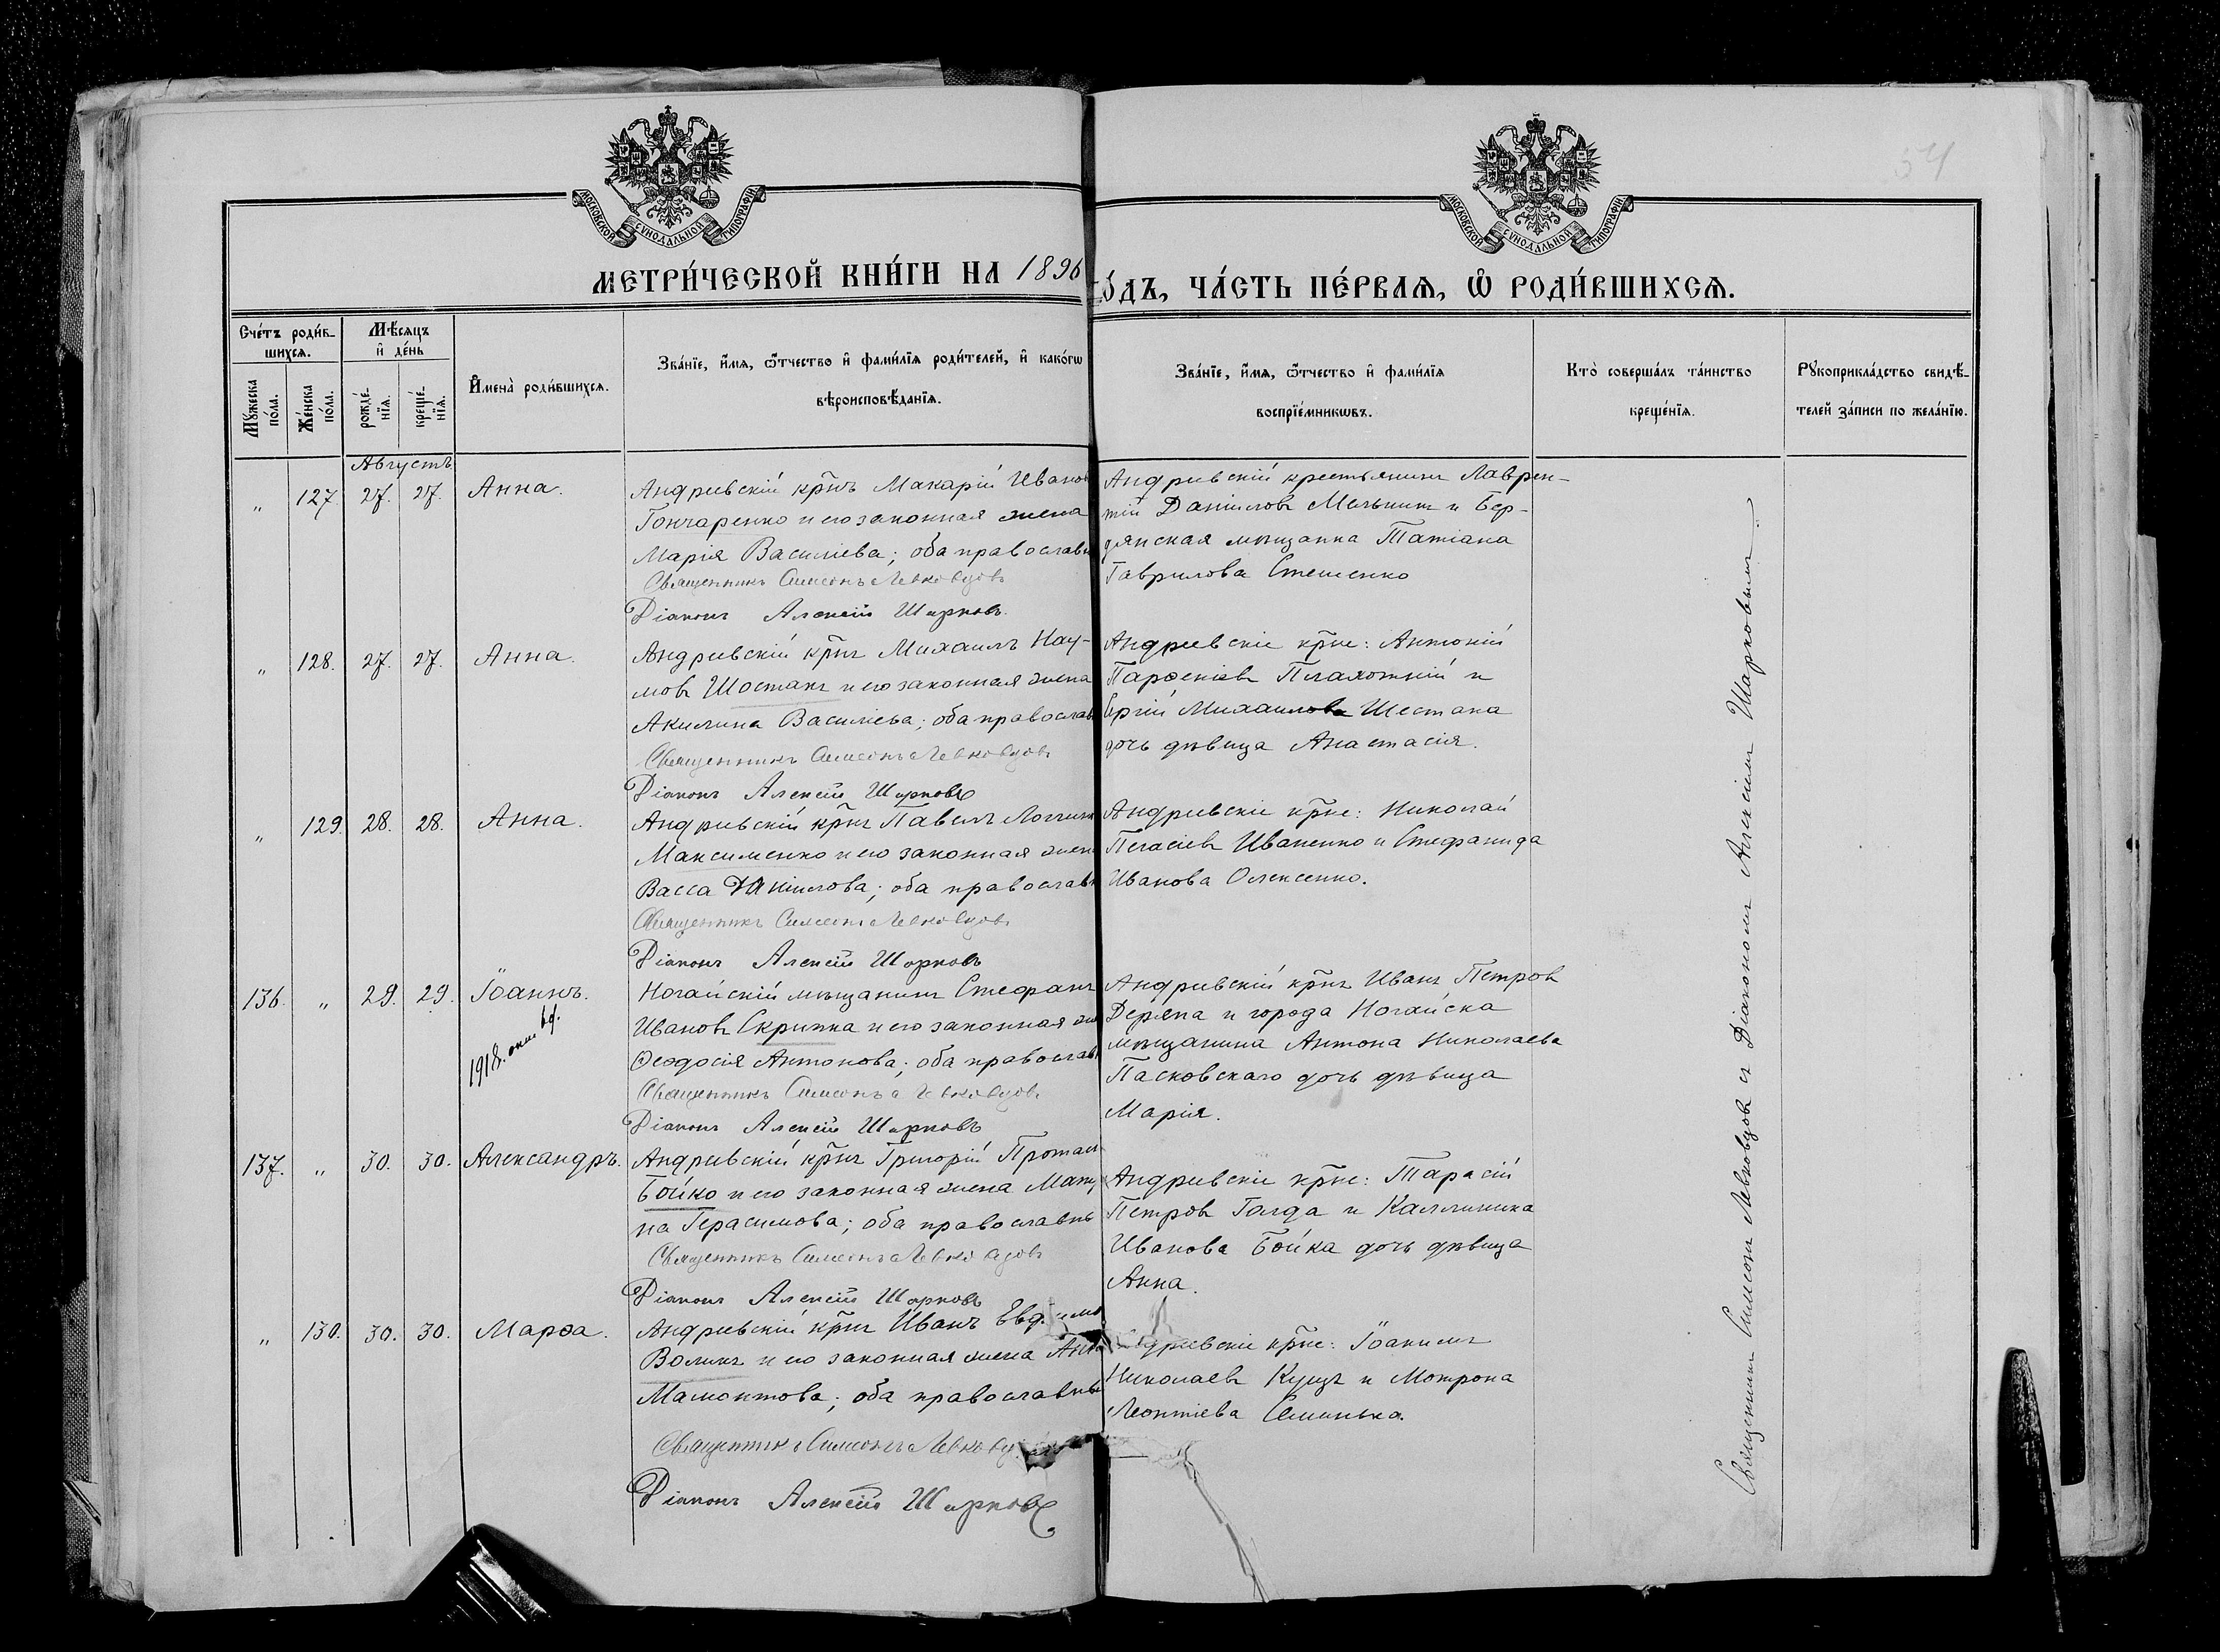 МОСКОВСКОЙ СѴНОДАЛЬНОЙ ТИПОГРАФІИ
МОСКОВСКОЙ СѴНОДАЛЬНОЙ ТИПОГРАФІИ
МЕТРИ́ЧЕСКОЙ КНИ́ГИ НА 1896
О́ДЪ, ЧА́СТЬ ПЕ́РВАѦ, Ѽ РОДИ́ВШИХСѦ.
Сче́тъ роди́в-
шихсѧ.
Мꙋ́жеска по́ла.
Же́нска по́ла.
Мѣ́сѧцъ
и҆ де́нь
рожде́-
нїѧ.
креще́-
нїѧ.
И҆мена̀ роди́вшихсѧ.
Зва́нїе, и҆́мѧ, ѻ҆́тчество и҆ фами́лїѧ роди́телей, и҆ како́гѡ
вѣроисповѣ́данїѧ.
Зва́нїе, и҆́мѧ, ѻ҆́тчество и҆ фами́лїѧ
воспрїе́мникѡвъ.
Кто̀ соверша́лъ та́инство
креще́нїѧ.
Рꙋкоприкла́дство свидѣ́-
телей за́писи по жела́нїю.
Августъ
" 127. 27. 27. Анна.
Андреевскій кр̃нъ Макарій Иванов
Гончаренко и его законная жена
Марія Василіева; оба православн
Священникъ Симеонъ Левковцовъ
Діаконъ Алексій Шарковъ.
Андреевскій крестьянинъ Лаврен-
тій Даніиловъ Мельникъ и Бер-
дянская мѣщанка Татіана
Гаврилова Стешенко
" 128. 27. 27. Анна.
Андреевскій кр̃нъ Михаилъ Нау-
мовъ Шостакъ и его законная жена
Акилина Василіева; оба православ
Священникъ Симеонъ Левковцовъ
Діаконъ Алексій Шарковъ
Андреевскіе кр̃не: Антоній
Парѳеніевъ Плахотній и
Михаилова Шестака
дочь дѣвица Анастасія.
" 129. 28. 28. Анна.
Андреевскій кр̃нъ Павелъ Логгин
Максименко и его законная жен
Васса Даніилова; оба православн
Священникъ Симеонъ Левковцовъ
Діаконъ Алексій Шарковъ
Андреевскіе кр̃не: Николай
Иваненко и Стефанида
Иванова Олексенко.
136. " 29. 29. Іоаннъ.
1918.
Ногайскій мѣщанинъ Стефанъ
Ивановъ Скрипка и его законная же
Ѳеодосія Антонова; оба православн
Священникъ Симеонъ Левковцовъ
Діаконъ Алексій Шарковъ
Андреевскій кр̃нъ Иванъ Петров
Деряпа и города Ногайска
мѣщанина Антона Николаева
Пасковскаго дочь дѣвица
Марія.
137. " 30. 30. Александръ.
Андреевскій кр̃нъ Григорій Протас
Бойко и его законная жена Мат
на Герасимова; оба православны
Священникъ Симеонъ Левковцовъ
Діаконъ Алексій Шарковъ
Андреевскіе кр̃не: Тарасій
Петровъ Голда и Каллиника
Иванова Бойка дочь дѣвица
Анна.
" 130. 30. 30. Марѳа.
Андреевскій кр̃нъ Иванъ Евдоимо
Воликъ и его законная жена Анна
Мамонтова; оба православны
Священникъ Симеонъ Левковц
Діаконъ Алексій Шарковъ
дреевскіе кр̃не: Іоакимъ
Николаевъ Куцъ и Мотрона
Леонтіева Семинька.
Священникъ Симеонъ Левковцовъ съ Діакономъ Алексіемъ Шарковымъ